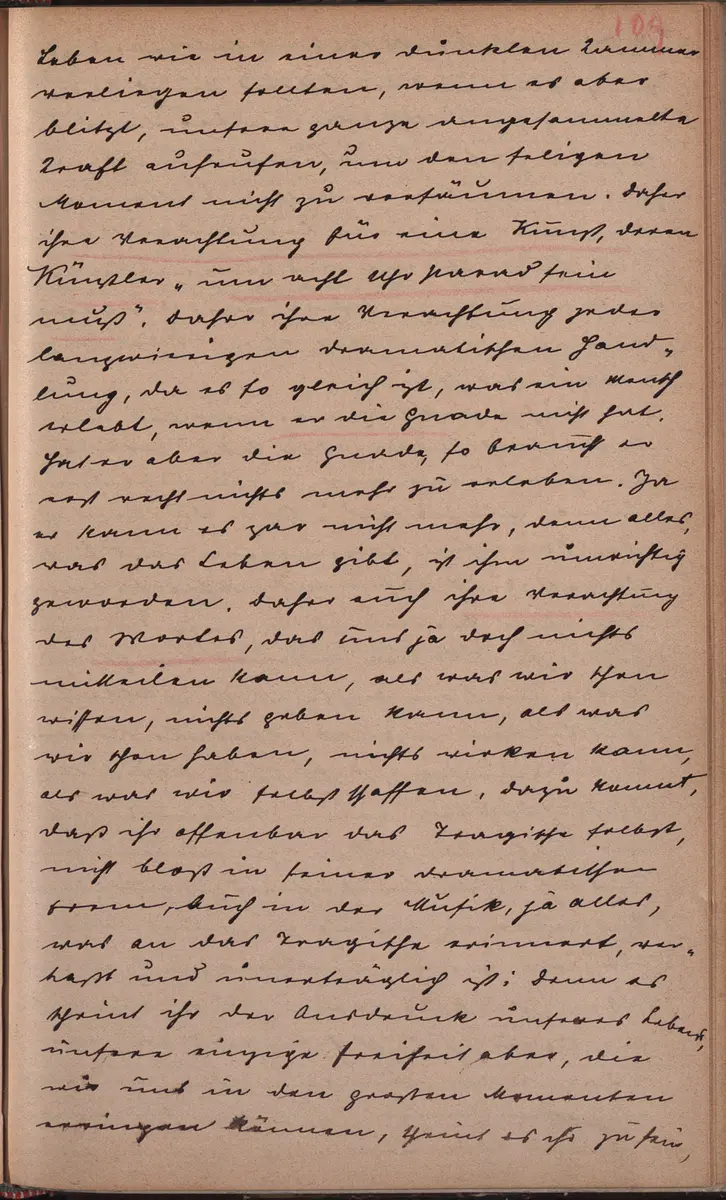 109
Leben wie in einer dunklen Kammer
verliegen sollten, wenn es aber
blitzt, unsere ganze angesammelte
Kraft aufrufen, um den seligen
Moment nicht zu versäumen. Daher
ihre Verachtung für eine Kunst, deren
Künstler „um acht Uhr parad sein
muß“. Daher ihre Verachtung jeder
langwierigen dramatischen Hand„
lung, da es so gleich ist, was ein Mensch
erlebt, wenn er die Gnade nicht hat.
Hat er aber die Gnade, so braucht er
erst recht nichts mehr zu erleben. Ja
er kann es gar nicht mehr, denn alles,
was das Leben gibt, ist ihm unwichtig
geworden. Daher auch ihre Verachtung
des Wortes, das uns ja doch nichts
mitteilen kann, als was wir schon
wissen, nichts geben kann, als was
wir schon haben, nichts wirken kann,
als was wir selbst schaffen. Dazu kommt,
daß ihr offenbar das Tragische selbst,
nicht bloß in seiner dramatischen
Form, auch in der Musik, ja alles,
was an das Tragische erinnert, ver„
haßt und unerträglich ist; denn es
scheint ihr der Ausdruck unseres Lebens,
unsere einzige Freiheit aber, die
wir uns in den großen Momenten
erringen können, scheint es ihr zu sein,